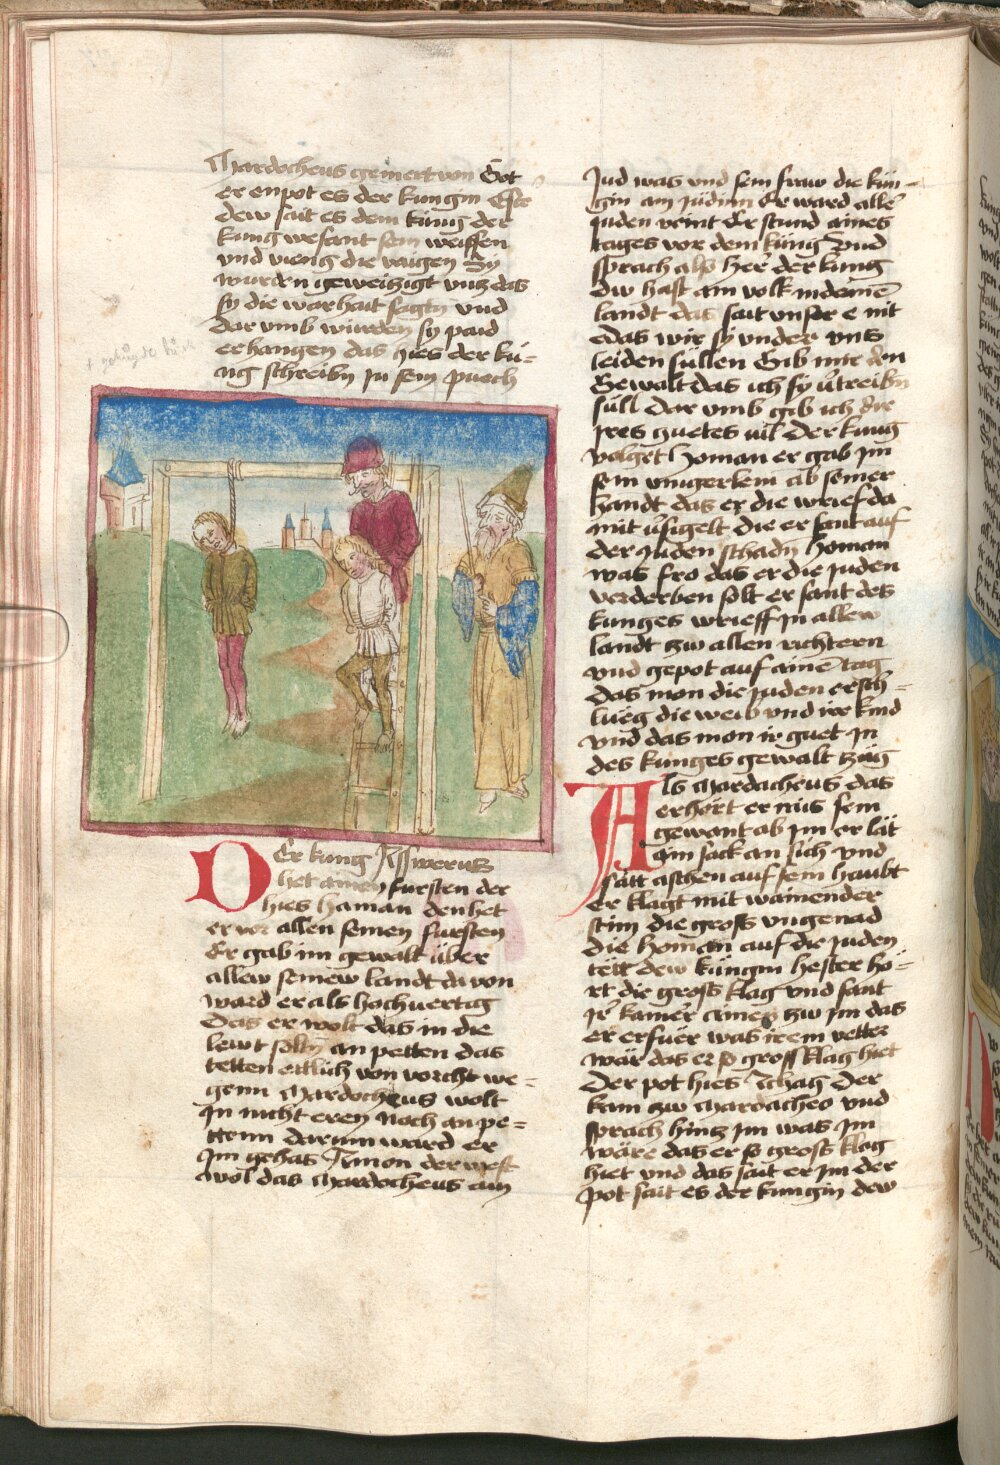 Mardocheus gemert von Got
er enpot es der kungin Este
dew sait es dem küng der
kung wesant sein weissen
vnd vieng die vaigen Sy
wurden geweiczigt vncz das
sy die warhait sagtn vnd
dar vmb wurden sy paid
erhangen das hies der kü=
nig schreibn in sein puech
Der kung Asswerus
het ainen fursten der
hies haman den het
er vor allen seinen fursten
Er gab im gewalt über
allew seinew landt da von
ward er als hochuertig
Das er wolt das in die
lewt soltn an petten das
tetten ettlich von vorcht we=
genn Mardocheus wolt
In nicht eren noch an pe=
ttenn darumb ward er
Im gehas Amon der west
wol das Mardocheus ain
Jud was vnd sein fraw die kün=
gin ain Jüdinn Er ward aller
Juden veint Er stund aines
tages vor dem küng Vnd
sprach also her der kung
Dw hast ain volk in deinē
landt das sait vnser e nit
Edas wir sy vnder vns
leiden süllen Gib mir den
Gewalt das ich sy v̄treibn
süll Dar vmb gib ich dir
ires guetes vil Der kung
volget Homan er gab im
sein vingerlein ab seiner
handt das er die brief da
mit v̄sigelt die er sant auf
der Juden schadn Homan
was fro das er die Juden
verderben solt er sant des
kunges wrieff in allew
landt zw allen richtern
vnd gepot auf ainē tag
das mon die Juden ersch=
lueg die weib vnd ire kind
vnd das mon ir guet in
des kunges gewalt züg
Als Mardacheus das
erhört er nüs sein
gewant ab im er lät
ain sack an sich vnd
sätt aschen auf sein haubt
er klagt mit wainender
stim die gross vngenad
die Homan auf die Juden
tett dew küngin hester hö=
rt die gross klag vnd sant
ir kamer aines zw im das
er erfuer was irem vetter
wär das er so gross klag hiet
Der pot hies Athag der
kam zw Mardacheo vnd
sprach hincz im was im
wäre das er so gross klag
hiet vnd das sait er im der
pot sait es der kungin dew